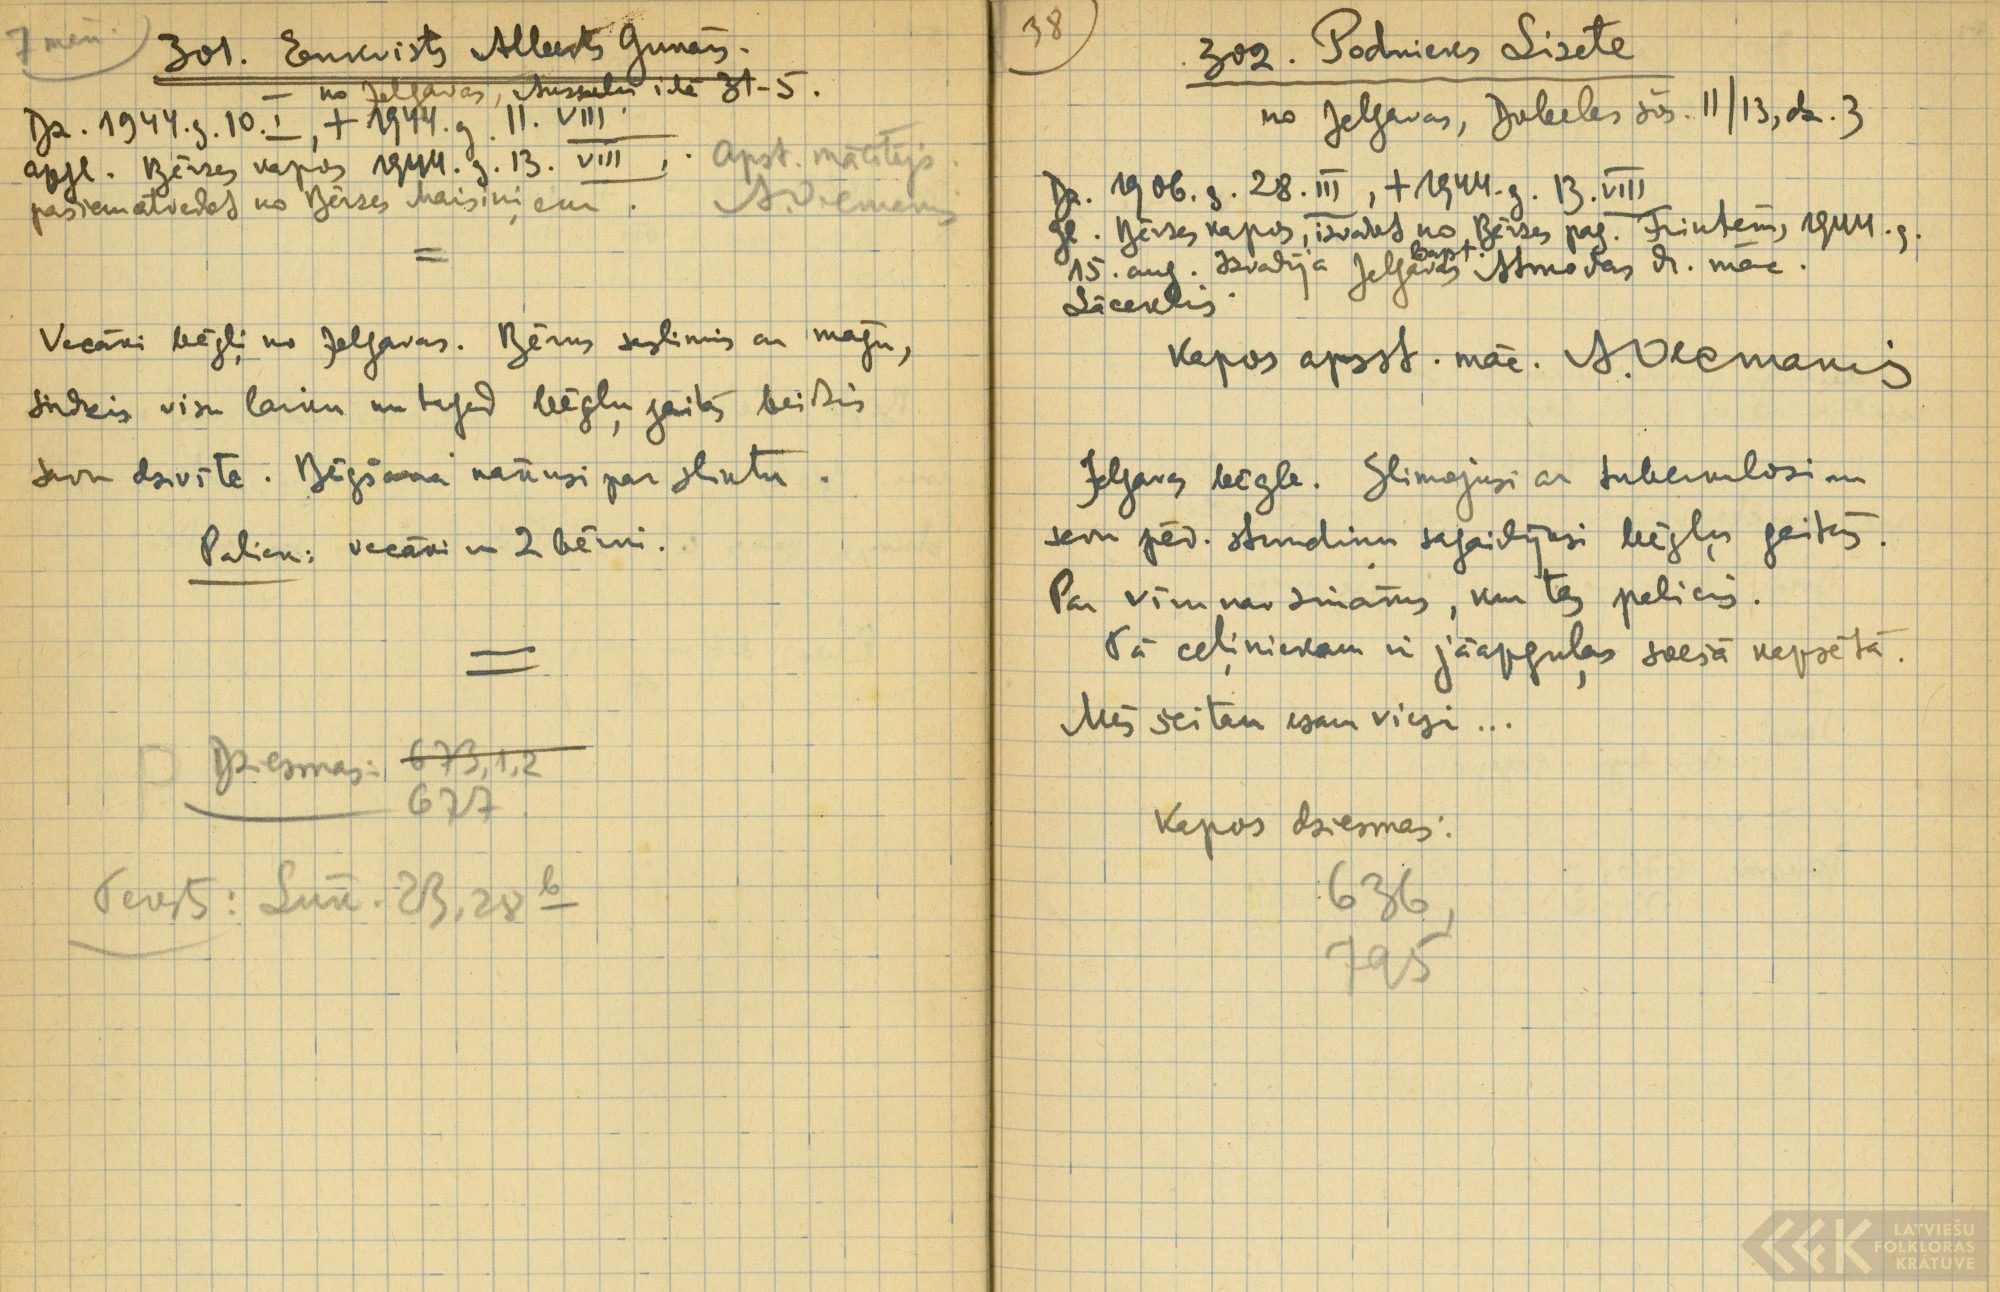 7 mēn.
301. Enkvists Alberts Gunārs.
no Jelgavas, Ausekļa ielā 31-5.
Dz. 1944.g. 10. I, + 1944.g. 11. VIII.
apgl. Bērzes kapos 1944.g. 13. VIII,.
Apst. mācītājs.
no Bērzes
A. Vecmanis
=
Vecāki bēgļi no Jelgavas. Bērns saslimis ar
visu laiku un tagad bēgļu gaitās beidzis
savu dzīvīti. Bēgšana nākusi par sliktu.
Paliek: vecāki un 2 bērni.
=
Dziesmas: 673,1,2
677
Teksts: Lūk. 23,28 b
38
302. Podnieks Lizete
no Jelgavas, Dobeles šos. 11/13, dz. 3
Dz. 1906.g. 28. III, + 1944.g. 13. VIII
gl. Bērzes kapos, izvadot no Bērzes pag. 1944.g.
15. aug. Izvadīja Jelgavas Bapt. Atmodas dr. māc.
Lāceklis.
Kapos apst. māc. A. Vecmanis
Jelgavas bēgle. Slimojusi ar tuberkulozi un
savu pēd. stundiņu sagaidījusi bēgļu gaitās.
Par vīru nav zināms, kur tas palicis.
Tā ceļiniekam ir jāapguļas svešā kapsētā.
Mēs šeitan esam viesi...
Kapos dziesmas:
636,
795
LATVIEŠU
FOLKLORAS
KRĀTUVE